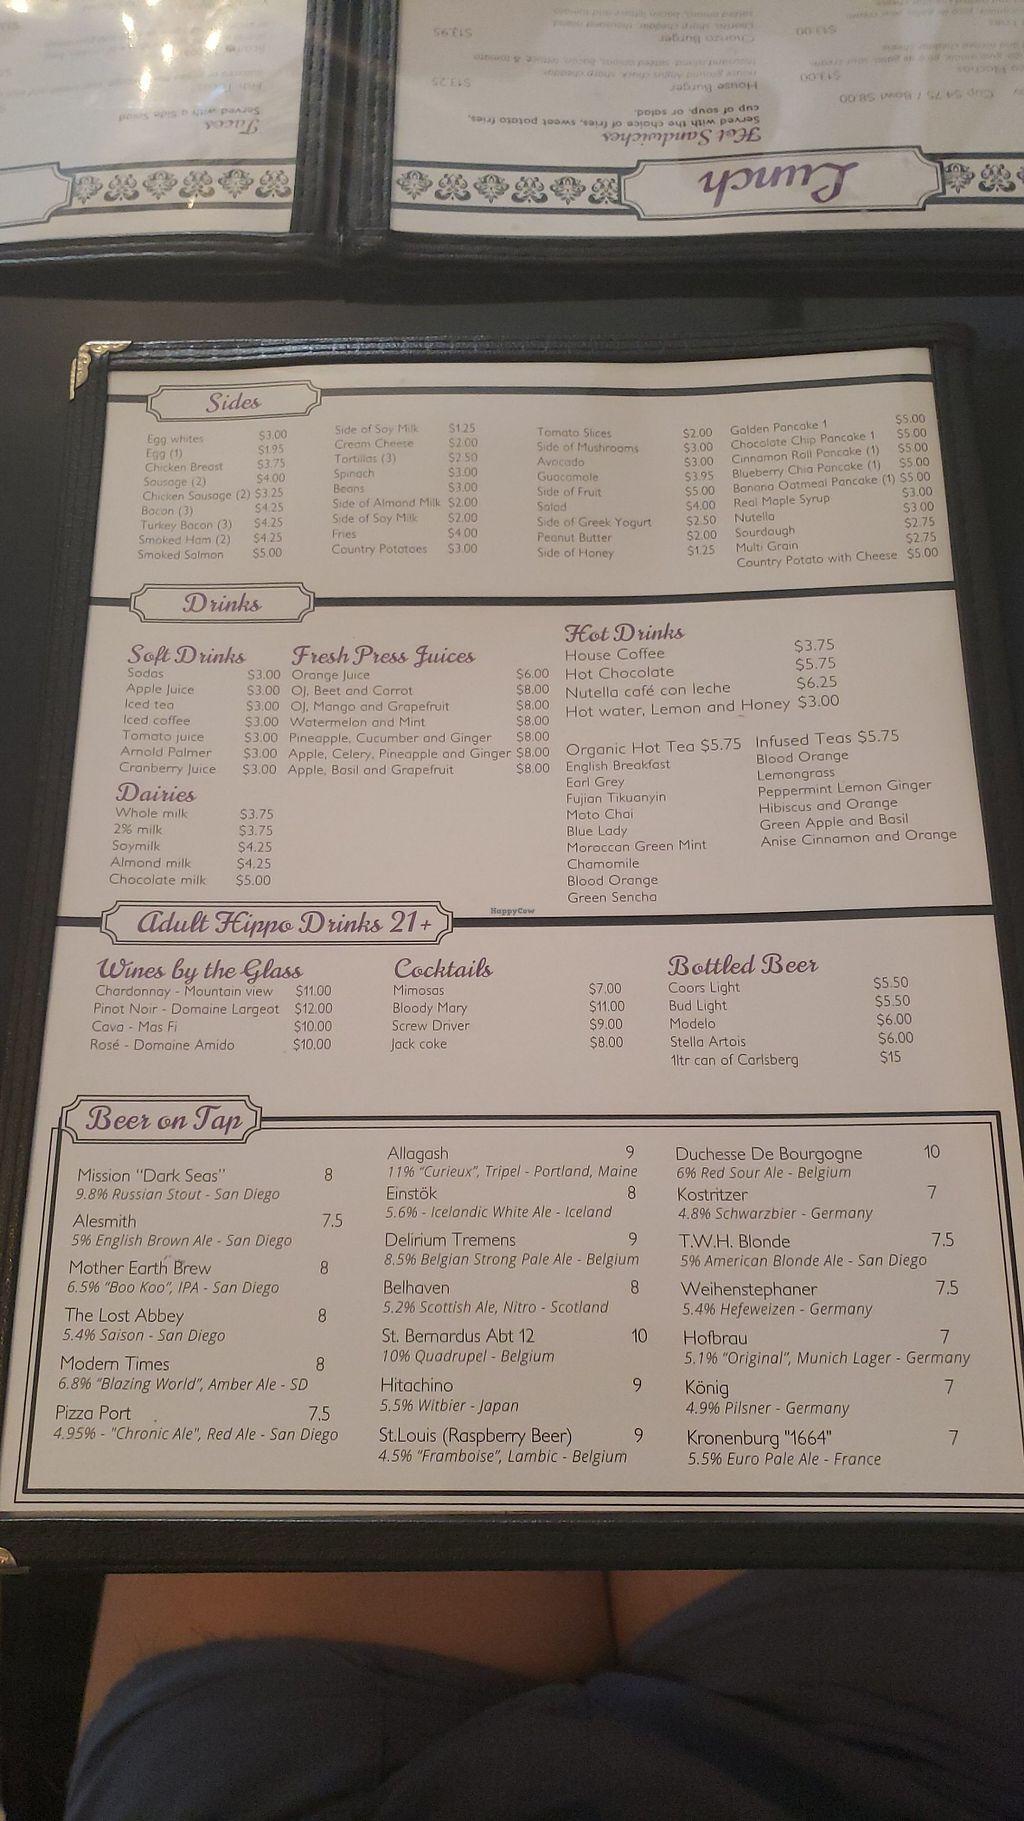 Tacos
Served with a Side Salad
Lunch
Hot Sandwiches
Served with the choice of fries, sweet potato fries,
cup of soup, or salad.
House Burger $13.25
Chorizo Burger $13.95
Cup $4.75 / Bowl $8.00
$13.00
$13.00
Sides
Egg whites $3.00
Egg (1) $1.95
Chicken Breast $3.75
Sausage (2) $4.00
Chicken Sausage (2) $3.25
Bacon (3) $4.25
Turkey Bacon (3) $4.25
Smoked Ham (2) $4.25
Smoked Salmon $5.00
Side of Soy Milk $1.25
Cream Cheese $2.00
Tortillas (3) $2.50
Spinach $3.00
Beans $3.00
Side of Almond Milk $2.00
Side of Soy Milk $2.00
Fries $4.00
Country Potatoes $3.00
Tomato Slices $2.00
Side of Mushrooms $3.00
Avocado $3.00
Guacamole $3.95
Side of Fruit $5.00
Salad $4.00
Side of Greek Yogurt $2.50
Peanut Butter $2.00
Side of Honey $1.25
Golden Pancake 1 $5.00
Chocolate Chip Pancake 1 $5.00
Cinnamon Roll Pancake (1) $5.00
Blueberry Chia Pancake (1) $5.00
Banana Oatmeal Pancake (1) $5.00
Real Maple Syrup $3.00
Nutella $3.00
Sourdough $2.75
Multi Grain $2.75
Country Potato with Cheese $5.00
Drinks
Soft Drinks
Sodas $3.00
Apple Juice $3.00
Iced tea $3.00
Iced coffee $3.00
Tomato juice $3.00
Arnold Palmer $3.00
Cranberry Juice $3.00
Dairies
Whole milk $3.75
2% milk $3.75
Soymilk $4.25
Almond milk $4.25
Chocolate milk $5.00
Fresh Press Juices
Orange Juice $6.00
OJ, Beet and Carrot $8.00
OJ, Mango and Grapefruit $8.00
Watermelon and Mint $8.00
Pineapple, Cucumber and Ginger $8.00
Apple, Celery, Pineapple and Ginger $8.00
Apple, Basil and Grapefruit $8.00
Hot Drinks
House Coffee $3.75
Hot Chocolate $5.75
Nutella café con leche $6.25
Hot water, Lemon and Honey $3.00
Organic Hot Tea $5.75
English Breakfast
Earl Grey
Fujian Tikuanyin
Moto Chai
Blue Lady
Moroccan Green Mint
Chamomile
Blood Orange
Green Sencha
Infused Teas $5.75
Blood Orange
Lemongrass
Peppermint Lemon Ginger
Hibiscus and Orange
Green Apple and Basil
Anise Cinnamon and Orange
HappyCow
Adult Hippo Drinks 21+
Wines by the Glass
Chardonnay - Mountain view $11.00
Pinot Noir - Domaine Largeot $12.00
Cava - Mas Fi $10.00
Rosé - Domaine Amido $10.00
Cocktails
Mimosas $7.00
Bloody Mary $11.00
Screw Driver $9.00
Jack coke $8.00
Bottled Beer
Coors Light $5.50
Bud Light $5.50
Modelo $6.00
Stella Artois $6.00
1ltr can of Carlsberg $15
Beer on Tap
Mission "Dark Seas" 8
9.8% Russian Stout - San Diego
Alesmith 7.5
5% English Brown Ale - San Diego
Mother Earth Brew 8
6.5% "Boo Koo", IPA - San Diego
The Lost Abbey 8
5.4% Saison - San Diego
Modern Times 8
6.8% "Blazing World", Amber Ale - SD
Pizza Port 7.5
4.95% - "Chronic Ale", Red Ale - San Diego
Allagash 9
11% "Curieux", Tripel - Portland, Maine
Einstök 8
5.6% - Icelandic White Ale - Iceland
Delirium Tremens 9
8.5% Belgian Strong Pale Ale - Belgium
Belhaven 8
5.2% Scottish Ale, Nitro - Scotland
St. Bernardus Abt 12 10
10% Quadrupel - Belgium
Hitachino 9
5.5% Witbier - Japan
St.Louis (Raspberry Beer) 9
4.5% "Framboise", Lambic - Belgium
Duchesse De Bourgogne 10
6% Red Sour Ale - Belgium
Kostritzer 7
4.8% Schwarzbier - Germany
T.W.H. Blonde 7.5
5% American Blonde Ale - San Diego
Weihenstephaner 7.5
5.4% Hefeweizen - Germany
Hofbrau 7
5.1% "Original", Munich Lager - Germany
König 7
4.9% Pilsner - Germany
Kronenburg "1664" 7
5.5% Euro Pale Ale - France